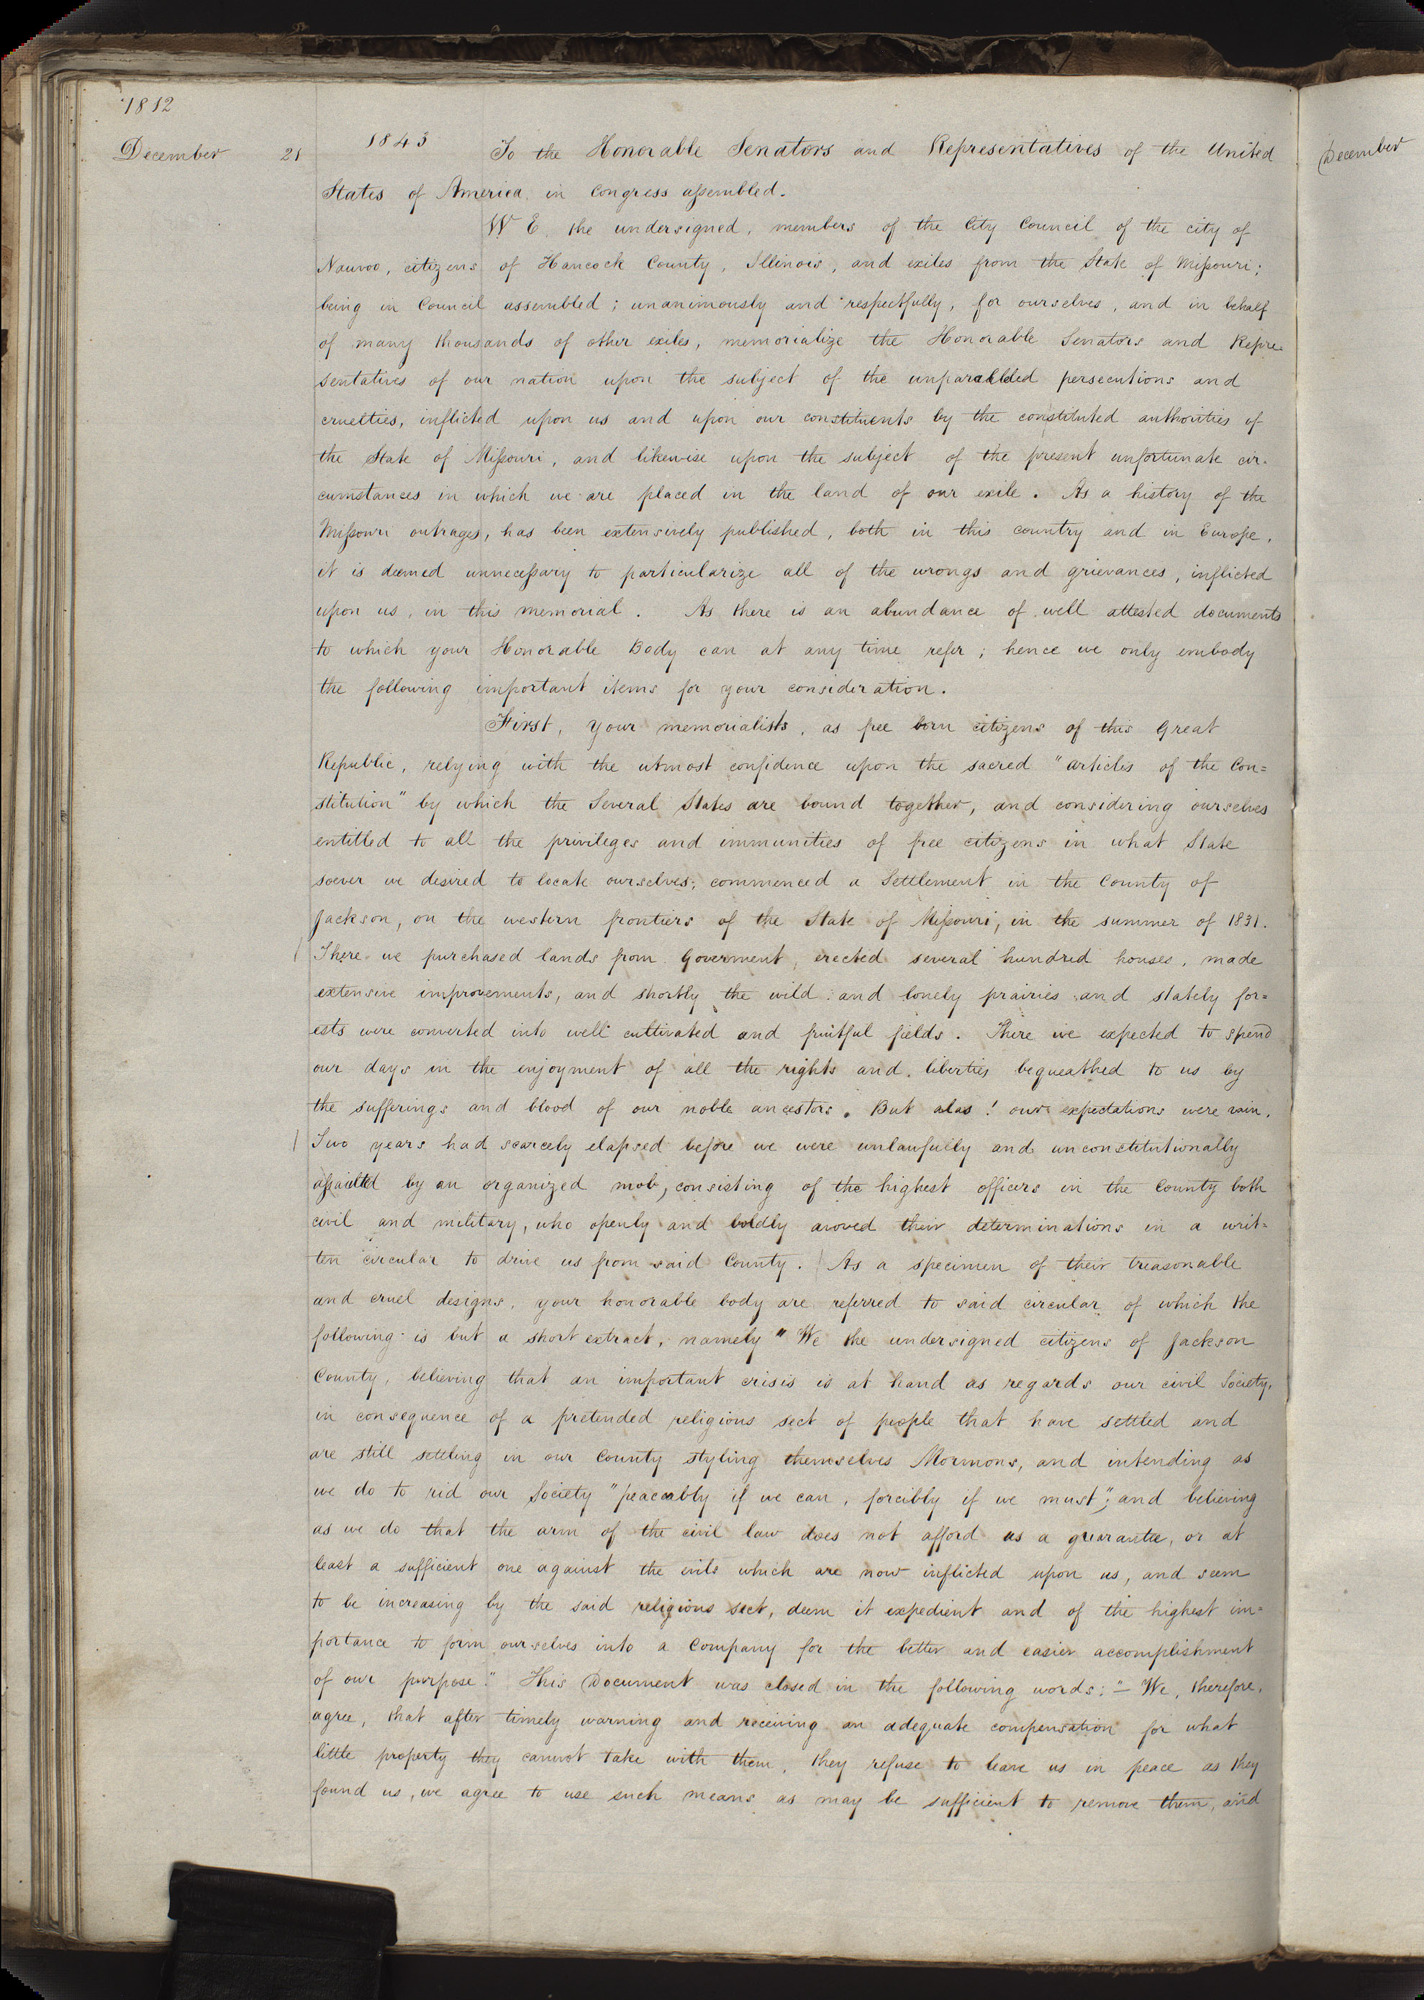 1812
December 21 1843 To the Honorable Senators and Representatives of the United
States of America in Congress assembled.
WE, the undersigned, members of the City Council of the city of
Nauvoo, citizens of Hancock County, Illinois, and exiles from the State of Missouri;
being in Council assembled; unanimously and respectfully, for ourselves, and in behalf
of many thousands of other exiles, memorialize the Honorable Senators and Repre-
sentatives of our nation upon the subject of the unparallded persecutions and
cruelties, inflicted upon us and upon our constituents by the constituted authorities of
the State of Missouri, and likewise upon the subject of the present unfortunate cir-
cumstances in which we are placed in the land of our exile. As a history of the
Missouri outrages, has been extensively published, both in this country and in Europe,
it is deemed unnecessary to particularize all of the wrongs and grievances, inflicted
upon us, in this memorial. As there is an abundance of well attested documents
to which your Honorable Body can at any time refer; hence we only embody
the following important items for your consideration.
First, your memorialists, as free born citizens of this Great
Republic, relying with the utmost confidence upon the sacred "articles of the Con=
stitution" by which the Several States are bound together, and considering ourselves
entitled to all the privileges and immunities of free citizens in what State
soever we desired to locate ourselves; commenced a Settlement in the County of
Jackson, on the western frontiers of the State of Missouri, in the summer of 1831.
There we purchased lands from Goverment, erected several hundred houses, made
extensive improvements, and shortly the wild and lonely prairies and stately for=
ests were converted into well cultivated and fruitful fields. There we expected to spend
our days in the enjoyment of all the rights and liberties bequeathed to us by
the sufferings and blood of our noble ancestors. But alas! our expectations were vain.
Two years had scarcely elapsed before we were unlawfully and unconstitutionally
assaulted by an organized mob, consisting of the highest officers in the County both
civil and military, who openly and boldly avowed their determinations in a writ=
ten circular to drive us from said County. As a specimen of their treasonable
and cruel designs, your honorable body are referred to said circular of which the
following is but a short extract, namely "We the undersigned citizens of Jackson
County, believing that an important crisis is at hand as regards our civil Society,
in consequence of a pretended religious sect of people that have settled and
are still settling in our County styling themselves Mormons, and intending as
we do to rid our Society "peaceably if we can, forcibly if we must"; and believing
as we do that the arm of the civil law does not afford us a guarantee, or at
least a sufficient one against the evils which are now inflicted upon us, and seem
to be increasing by the said religious sect, deem it expedient and of the highest im=
portance to form ourselves into a Company for the better and easier accomplishment
of our purpose." This Document was closed in the following words; "— We, therefore,
agree, that after timely warning and receiving an adequate compensation for what
little property they cannot take with them, they refuse to leave us in peace as they
found us, we agree to use such means as may be sufficient to remove them, and
December